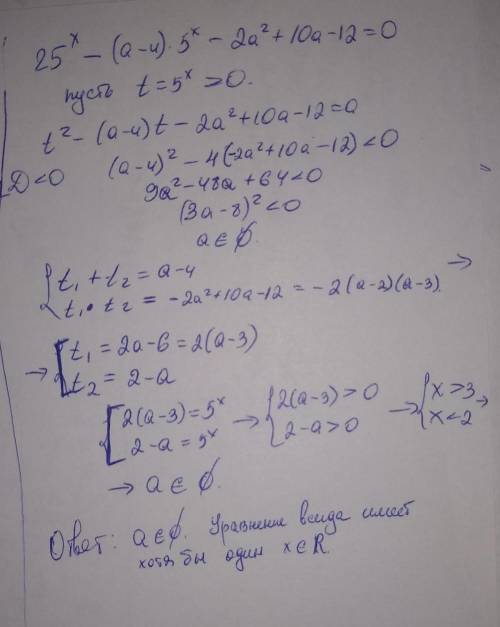 25ˣ − (a−4)·5ˣ − 2a² + 10a − 12 = 0
пусть t = 5ˣ > 0.
t² − (a−4)t − 2a² + 10a − 12 = 0
D < 0 (a−4)² − 4(−2a² + 10a − 12) < 0
9a² − 48a + 64 < 0
(3a − 8)² < 0
a ∈ ∅.
{ t₁ + t₂ = a − 4
t₁ • t₂ = −2a² + 10a − 12 = −2(a−2)(a−3) →
→ [ t₁ = 2a − 6 = 2(a−3)
t₂ = 2 − a
[ 2(a−3) = 5ˣ → { 2(a−3) > 0 → { x > 3 →
2 − a = 5ˣ 2 − a > 0 x < 2
→ a ∈ ∅.
Ответ: a ∈ ∅. Уравнение всегда имеет
хотя бы один x ∈ R.